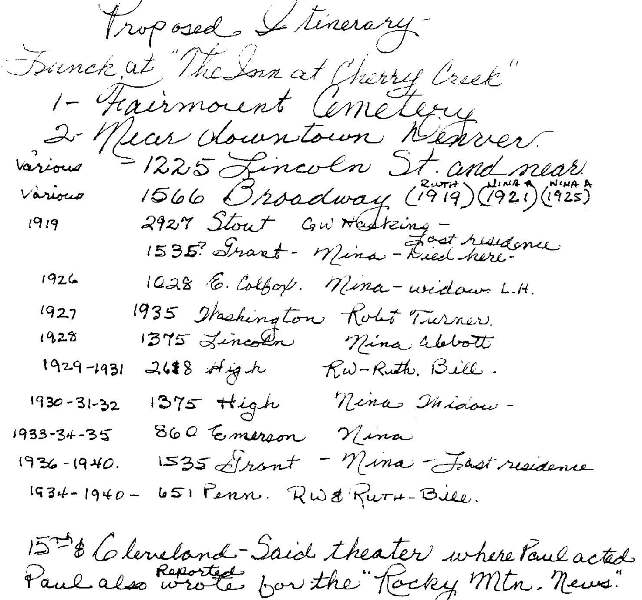 Proposed Itinerary-
Lunch at "The Inn at Cherry Creek"
1- Fairmount Cemetery
2- Near downtown Denver.
Various - 1225 Lincoln St. and near
Various 1566 Broadway (RUTH 1919) (NINA A 1921) (NINA A 1925)
1919 2927 Stout GW Hosking -
1535? Grant - Nina - Last residence Died here -
1926 1028 E. Colfax. Nina - widow L.H.
1927 1935 Washington Robt Turner.
1928 1375 Lincoln Nina Abbott
1929-1931 2688 High RW-Ruth. Bill.
1930-31-32 1375 High Nina Widow -
1933-34-35 860 Emerson Nina
1936-1940. 1535 Grant - Nina - Last residence
1934-1940- 651 Penn. RW & RUTH-Bill.
15th & Cleveland - Said theater where Paul acted
Paul also Reported wrote for the "Rocky Mtn. News".